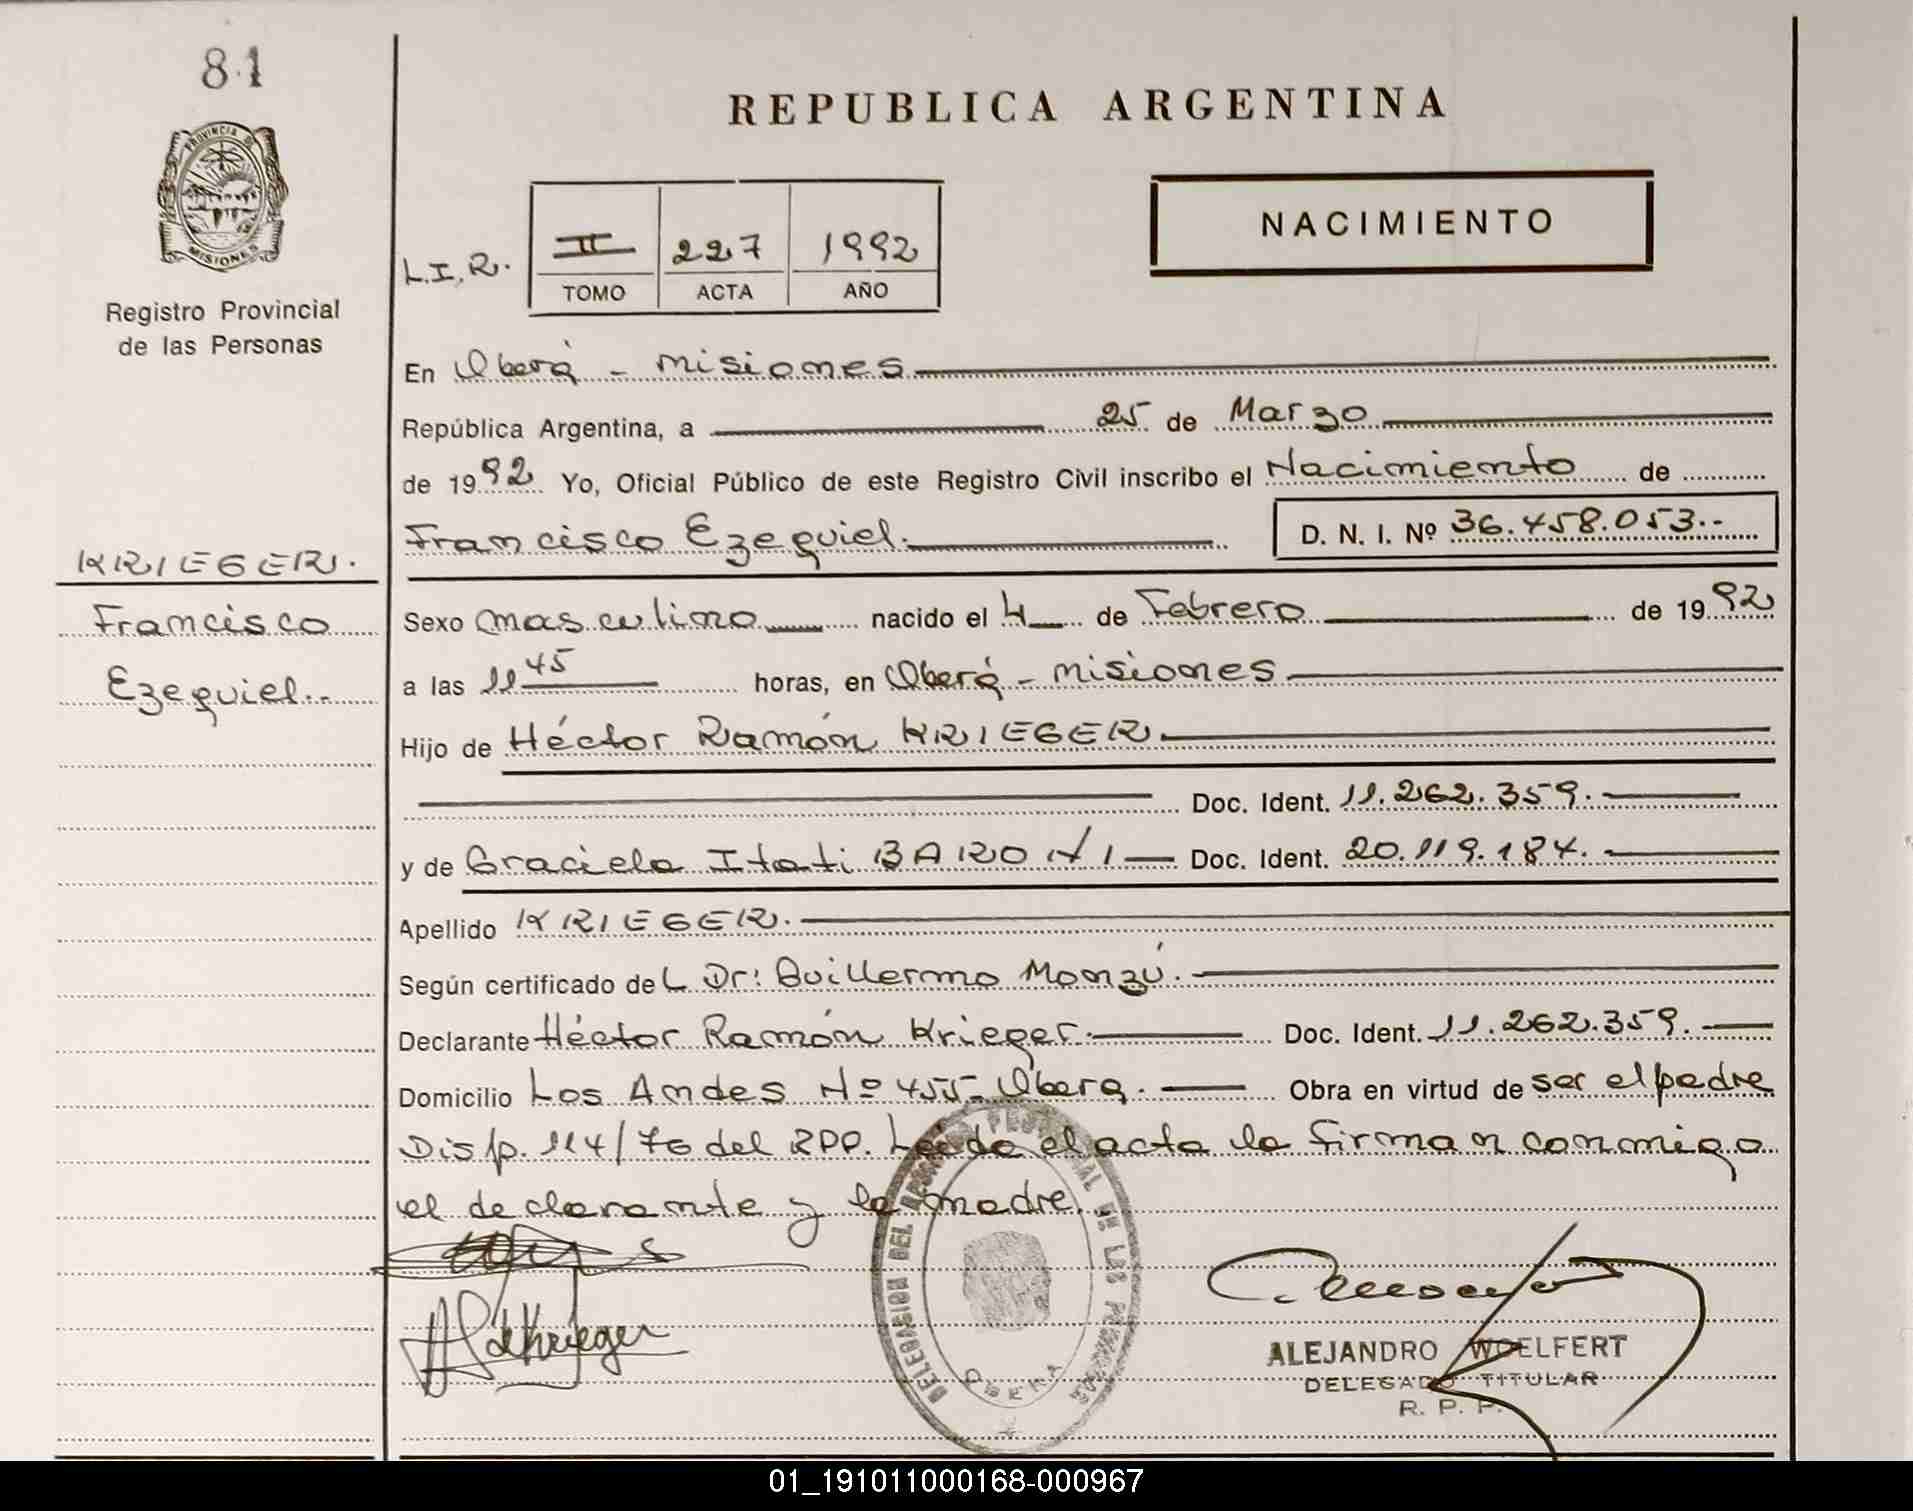 81
PROVINCIA DE
MISIONES
Registro Provincial
de las Personas
REPUBLICA ARGENTINA
NACIMIENTO
L.I.R. II 227 1992
TOMO ACTA AÑO
En Oberá - Misiones
República Argentina, a 25 de Marzo
de 1992 Yo, Oficial Público de este Registro Civil inscribo el Nacimiento de
Francisco Ezequiel. D. N. I. Nº 36.458.053.-
KRIEGER.
Francisco
Ezequiel.-
Sexo masculino nacido el 4 de Febrero de 1992
a las 11 45 horas, en Oberá - Misiones
Hijo de Héctor Ramón KRIEGER
Doc. Ident. 11.262.359.
y de Graciela Itati BARONI Doc. Ident. 20.119.184.
Apellido KRIEGER.
Según certificado del Dr: Guillermo Monzú.
Declarante Héctor Ramón Krieger. Doc. Ident. 11.262.359.
Domicilio Los Andes Nº 455 - Oberá. Obra en virtud de ser el padre
Disp. 114/76 del RPP. Leída el acta la firman conmigo
el declarante y la madre.
de Krieger
DELEGASION DEL REGISTRO PROVINCIAL DE LAS PERSONAS
OBERA
ALEJANDRO WOELFERT
DELEGADO TITULAR
R. P. P.
01_191011000168-000967